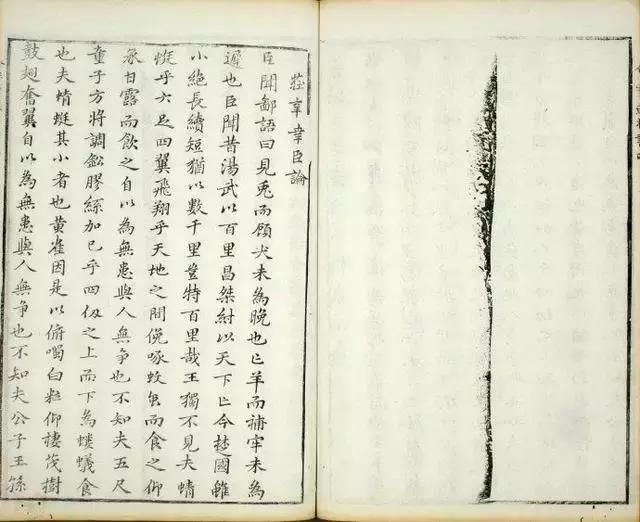 莊辛幸臣論
臣聞鄙語曰見兎而顧犬未為晚也亡羊而補牢未為
遲也臣聞昔湯武以百里昌桀紂以天下亡今楚國雖
小絶長續短猶以數千里豈特百里哉王獨不見夫蜻
蜓乎六足四翼飛翔乎天地之間俛啄蚊虻而食之仰
承甘露而飲之自以為無患與人無爭也不知夫五尺
童子方將調鈆膠絲加已乎四仭之上而下為螻蟻食
也夫蜻蜓其小者也黃雀因是以俯噣白粒仰棲茂樹
鼓翅奮翼自以為無患與人無爭也不知夫公子王孫